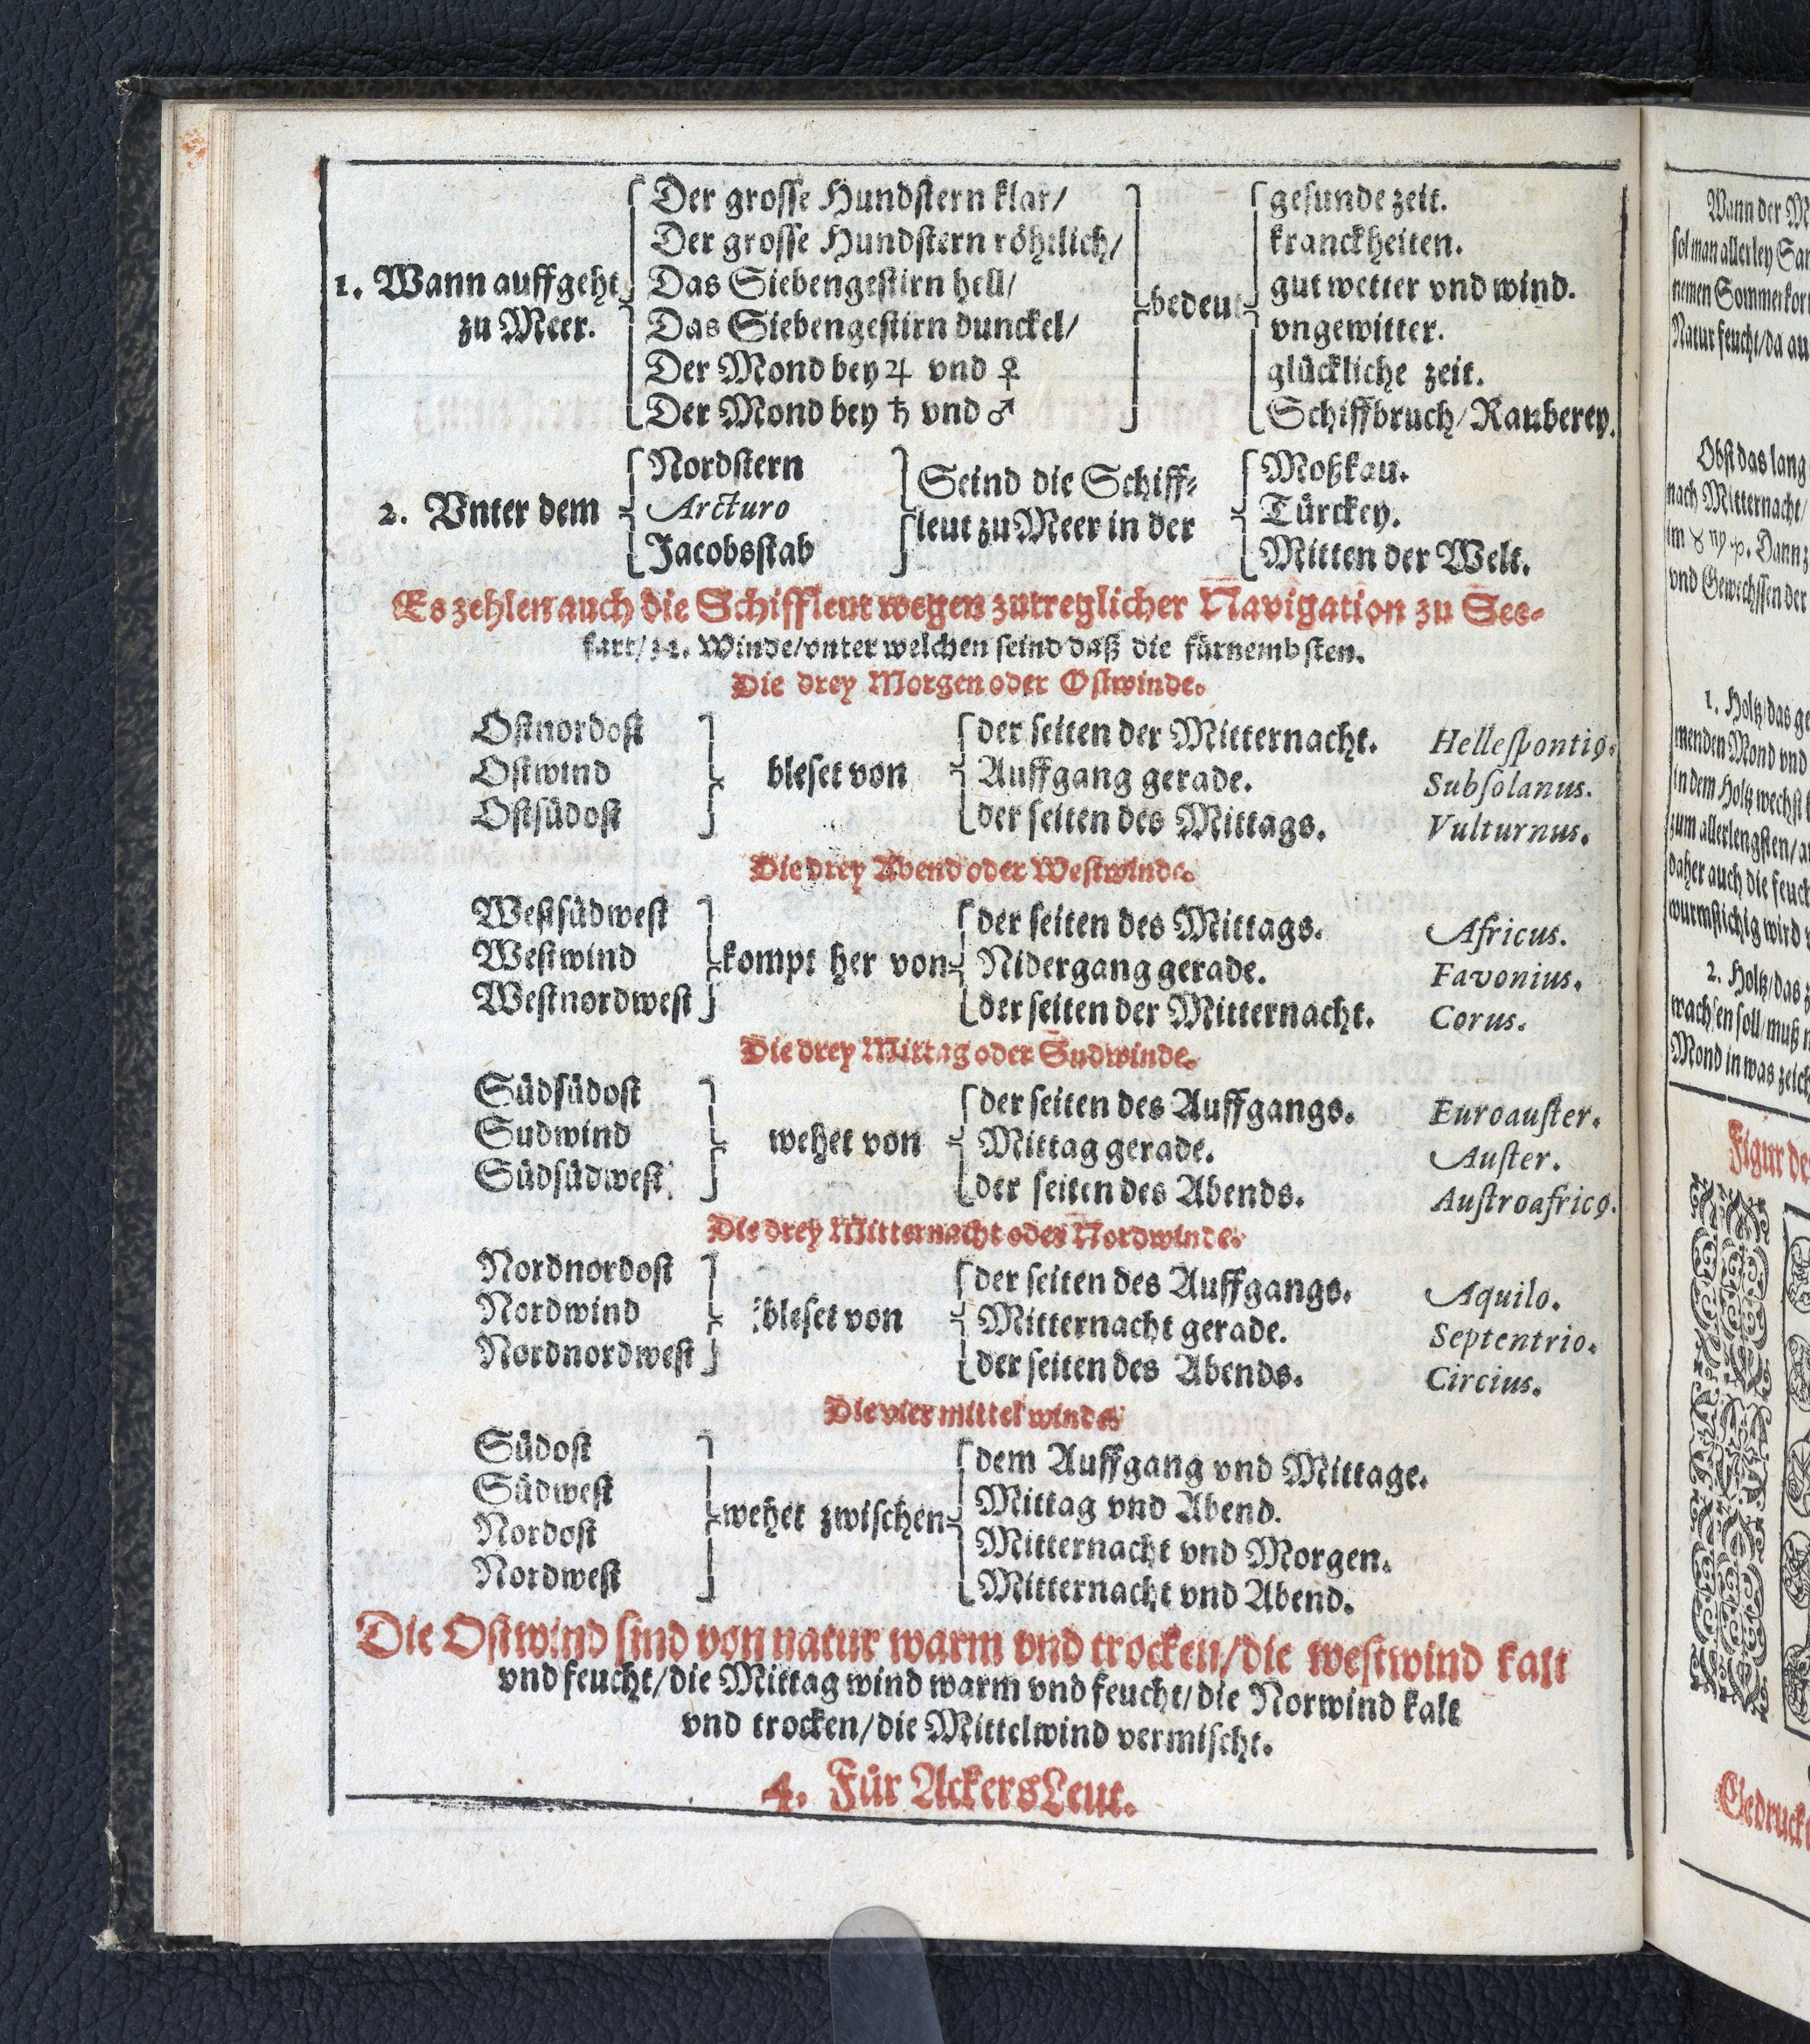 1. Wann auffgeht zu Meer.
Der grosse Hundstern klar/
Der grosse Hundstern röhtlich/
Das Siebengestirn hell/
Das Siebengestirn dunckel/
Der Mond bey ♃ vnd ♀
Der Mond bey ♄ vnd ♂
bedeut
gesunde zeit.
kranckheiten.
gut wetter vnd wind.
vngewitter.
glückliche zeit.
Schiffbruch/ Rauberey.
2. Vnter dem
Nordstern
Arcturo
Jacobsstab
Seind die Schiff-
leut zu Meer in der
Moßkau.
Türckey.
Mitten der Welt.
Es zehlen auch die Schiffleut wegen zutreglicher Navigation zu See-
fart/ 32. Winde/vnter welchen seind daß die fürnembsten.
Die drey Morgen oder Ostwinde.
Ostnordost
Ostwind
Ostsüdost
bleset von
der seiten der Mitternacht. Hellespontiꝰ.
Auffgang gerade. Subsolanus.
der seiten des Mittags. Vulturnus.
Die drey Abend oder Westwinde.
Westsüdwest
Westwind
Westnordwest
kompt her von
der seiten des Mittags. Africus.
Nidergang gerade. Favonius.
der seiten der Mitternacht. Corus.
Die drey Mittag oder Sudwinde.
Südsüdost
Sudwind
Südsüdwest
wehet von
der seiten des Auffgangs. Euroauster.
Mittag gerade. Auster.
der seiten des Abends. Austroafricꝰ.
Die drey Mitternacht oder Nordwinde.
Nordnordost
Nordwind
Nordnordwest
bleset von
der seiten des Auffgangs. Aquilo.
Mitternacht gerade. Septentrio.
der seiten des Abends. Circius.
Die vier mittel winde
Südost
Südwest
Nordost
Nordwest
wehet zwischen
dem Auffgang vnd Mittage.
Mittag vnd Abend.
Mitternacht vnd Morgen.
Mitternacht vnd Abend.
Die Ostwind sind von natur warm vnd trocken/die westwind kalt
vnd feucht/die Mittag wind warm vnd feucht/die Norwind kalt
vnd trocken/die Mittelwind vermischt.
4. Für AckersLeut.
Wann der
sol man allerley
nemen
Natur feucht/da
Obst das lang
nach Mitternacht/
im ♉ ♍ ♑. Dann
vnd Gewechssen der
1. Holtz/das
menden Mond vnd
in dem Holtz wechst
zum allerlengsten/
daher auch die
wurmstichig wird
2. Holtz/das
wachsen soll/muß
Mond in was
Figur